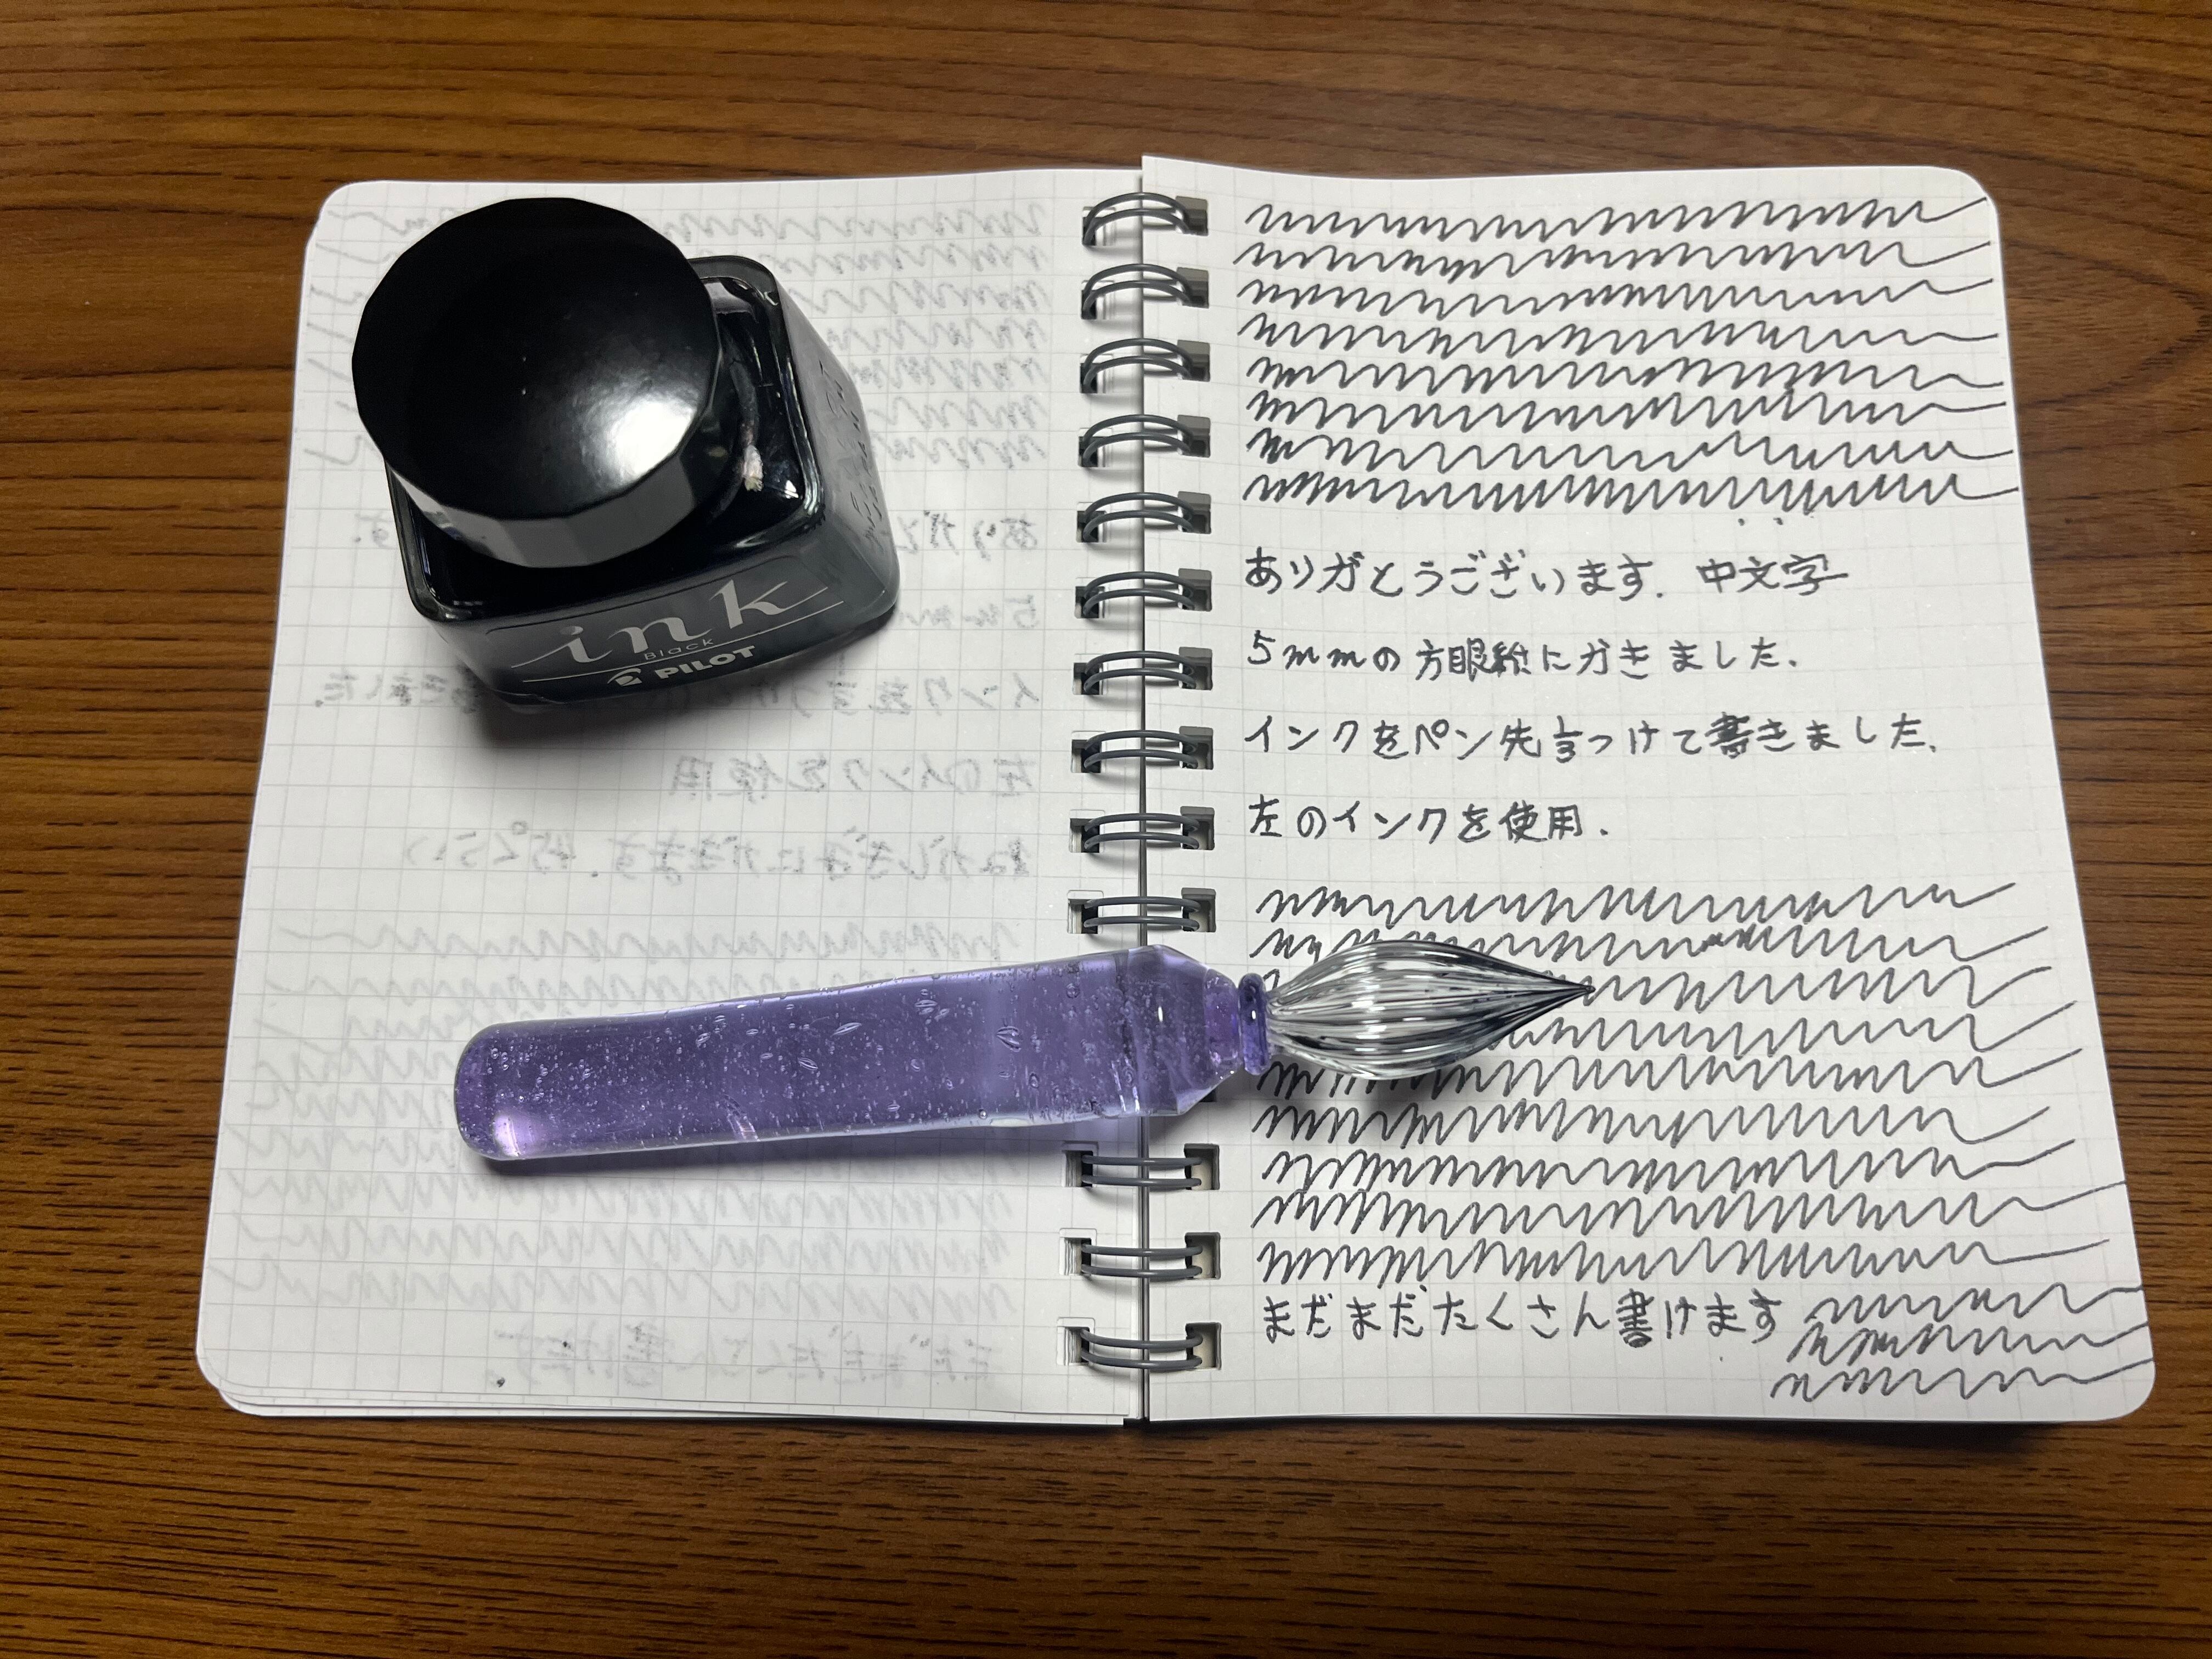 ink
Black
PILOT
ありがとうございます. 中文字
5mmの方眼紙にかきました.
インクをペン先⅓つけて書きました.
左のインクを使用.
まだまだたくさん書けます